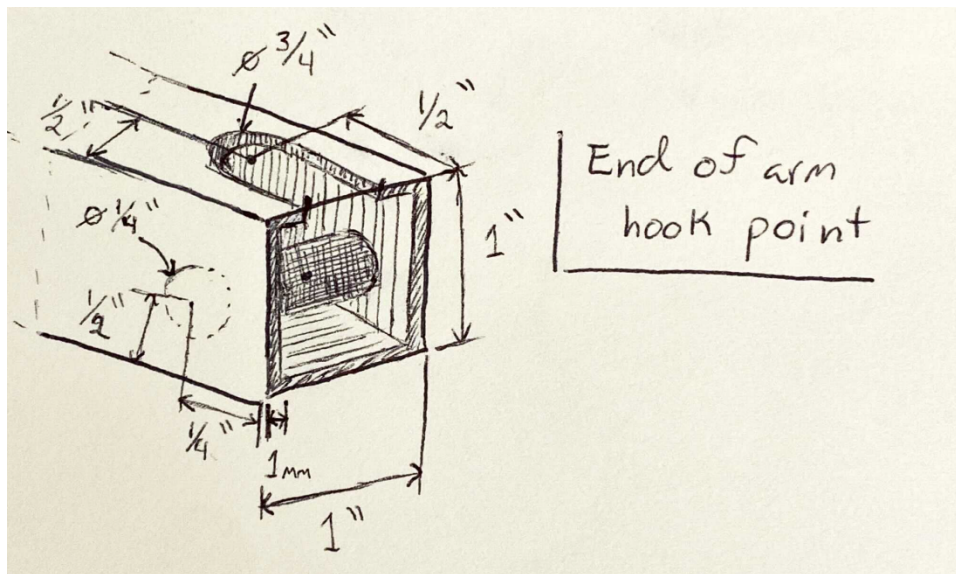 ø 3/4"
1/2"
1/2"
ø 1/4"
1"
End of arm
hook point
1/2"
1/4"
1mm
1"